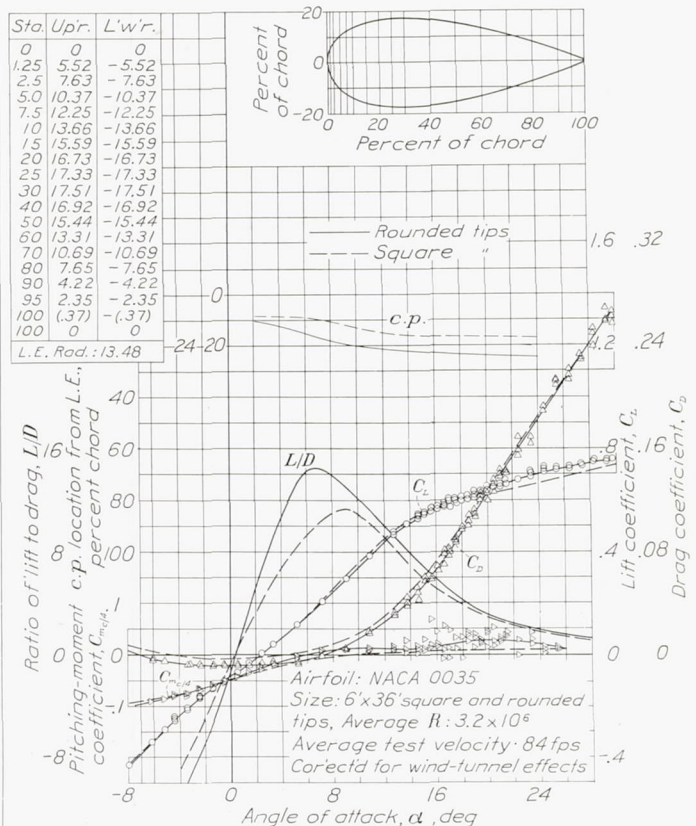 Sta. Up'r. L'w'r.
0 0 0
1.25 5.52 -5.52
2.5 7.63 -7.63
5.0 10.37 -10.37
7.5 12.25 -12.25
10 13.66 -13.66
15 15.59 -15.59
20 16.73 -16.73
25 17.33 -17.33
30 17.51 -17.51
40 16.92 -16.92
50 15.44 -15.44
60 13.31 -13.31
70 10.69 -10.69
80 7.65 -7.65
90 4.22 -4.22
95 2.35 -2.35
100 (.37) -(.37)
100 0 0
L.E. Rad.: 13.48
Percent of chord
20
0
-20
0 20 40 60 80 100
Percent of chord
Rounded tips
Square "
1.6 .32
0
c.p.
24 20
1.2 .24
40
16 60
.8 .16
L/D
80
C_L
8 100
.4 .08
C_D
.1
0 0
0 0
C_mc/4
-.1
-8
-.4
Ratio of lift to drag, L/D
Pitching-moment coefficient, C_mc/4.
c.p. location from L.E., percent chord
Lift coefficient, C_L
Drag coefficient, C_D
Airfoil: NACA 0035
Size: 6'x36' square and rounded
tips, Average R: 3.2x10⁶
Average test velocity· 84 fps
Cor'ect'd for wind-tunnel effects
-8 0 8 16 24
Angle of attack, α, deg